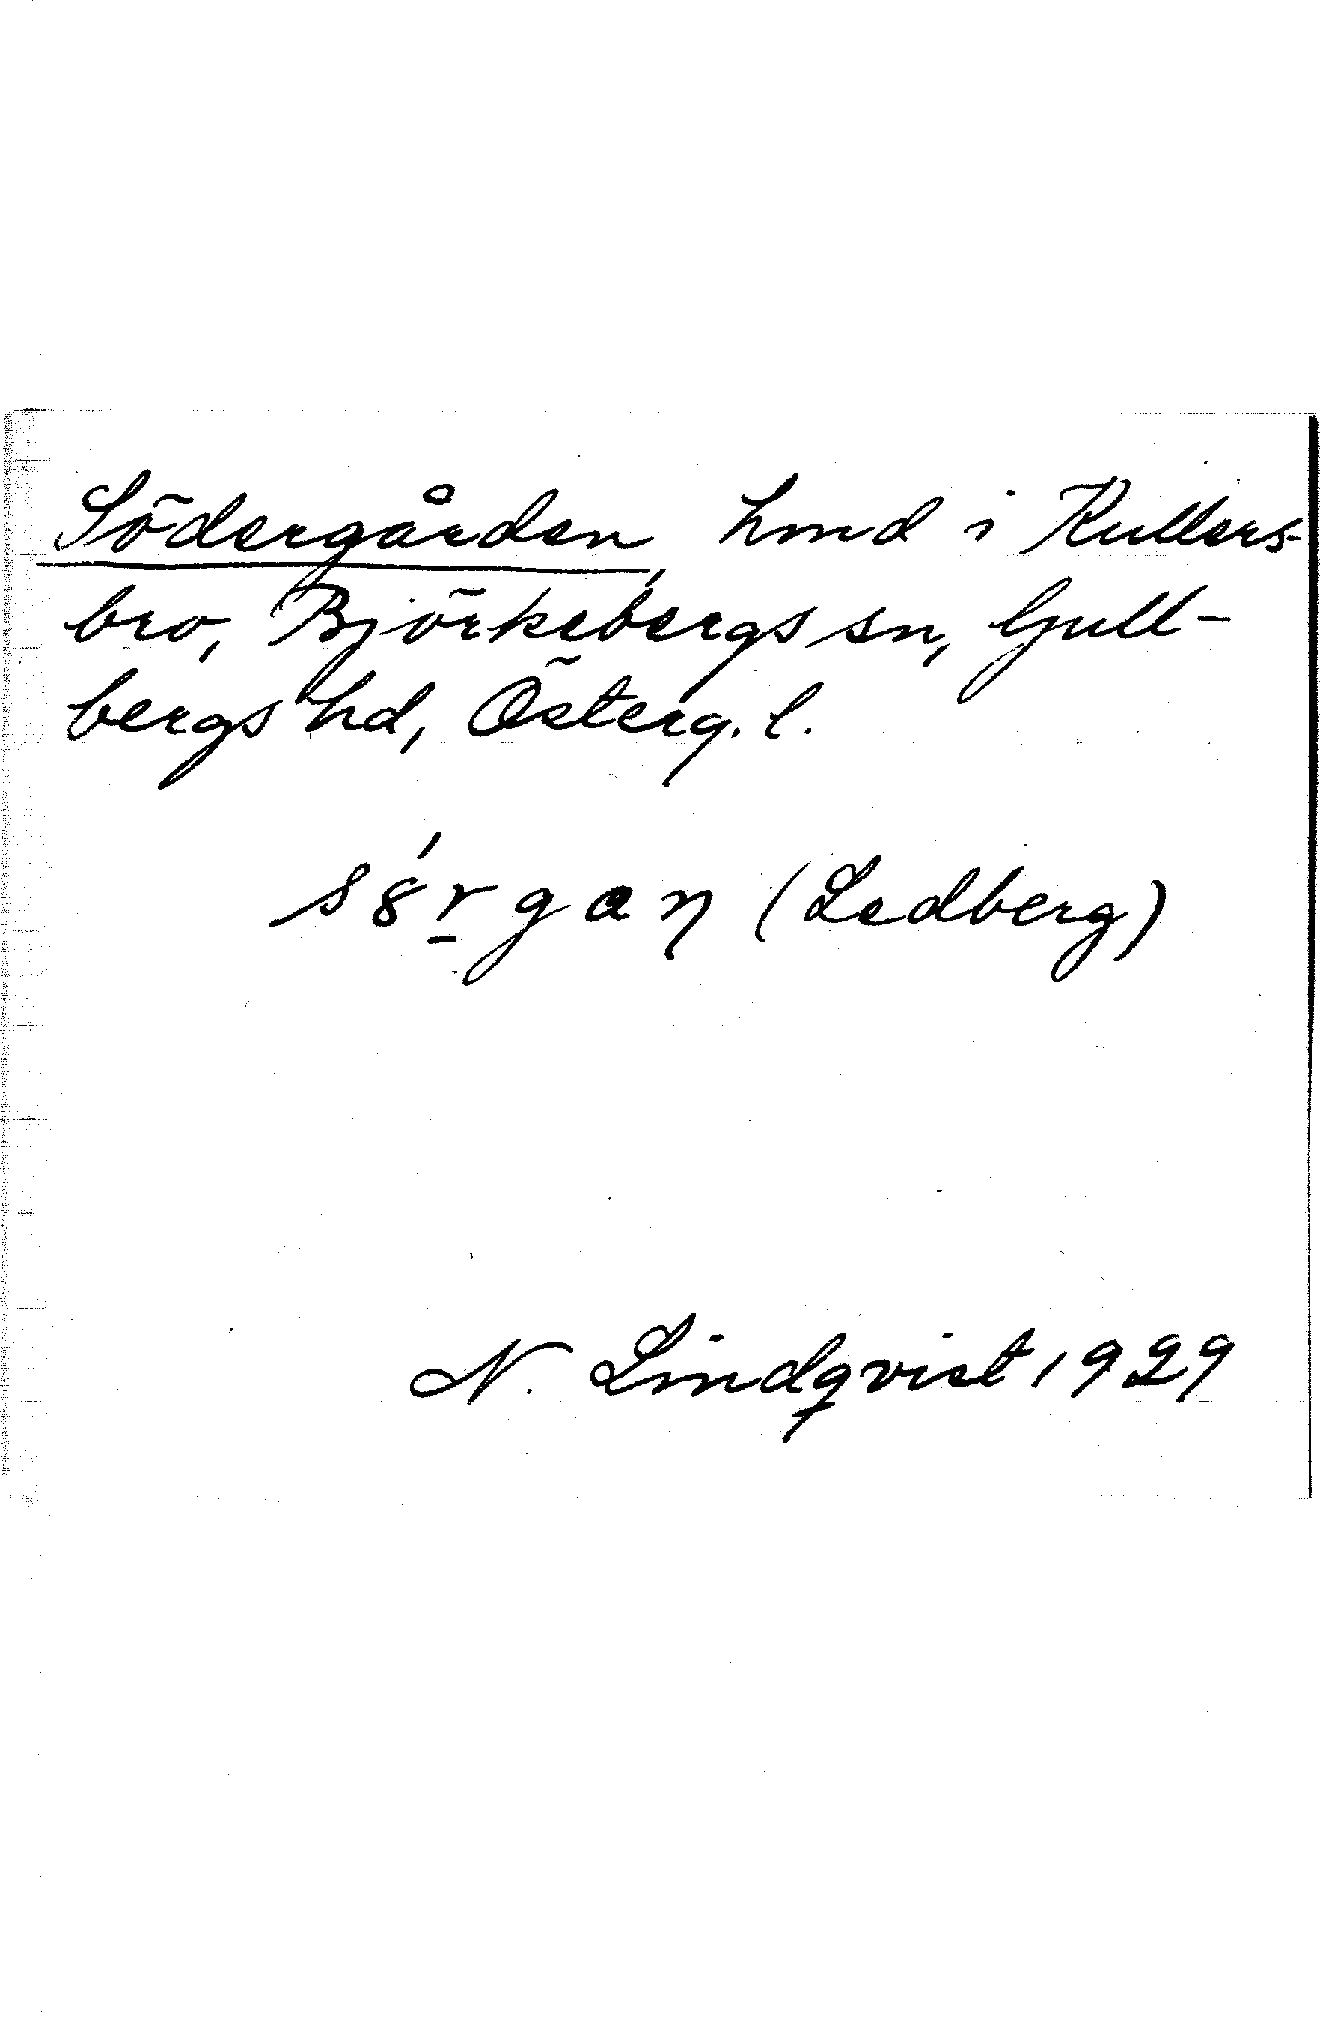 Södergården, hmd i Kullers-
bro, Björkebergs sn, Gull-
bergs hd, Österg. l.
s8́r̲gaŋ (Ledberg)
N. Lindqvist 1929